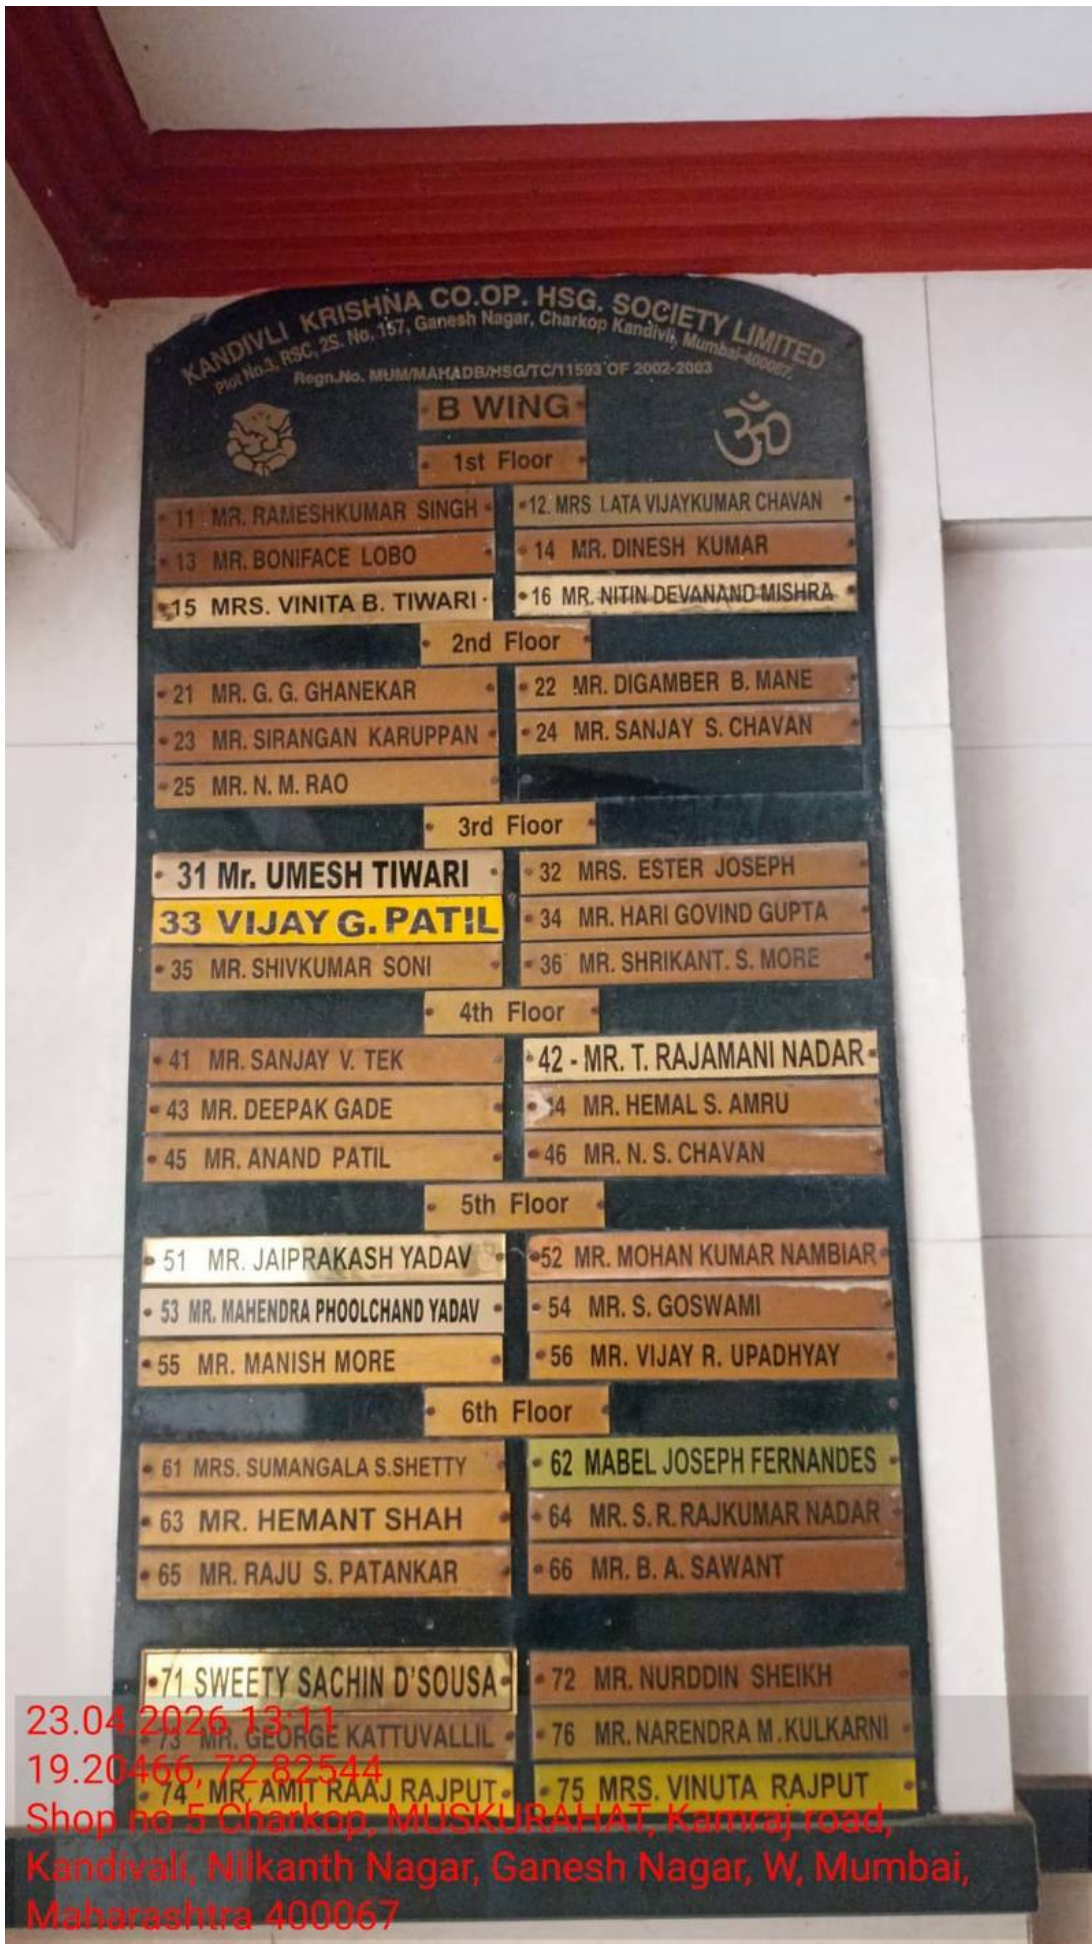 KANDIVLI KRISHNA CO.OP. HSG. SOCIETY LIMITED
Plot No.3, RSC, 2S. No. 157, Ganesh Nagar, Charkop Kandivli, Mumbai-400067.
Regn.No. MUM/MAHADB/HSG/TC/11593 OF 2002-2003
B WING
ॐ
1st Floor
11 MR. RAMESHKUMAR SINGH
12. MRS LATA VIJAYKUMAR CHAVAN
13 MR. BONIFACE LOBO
14 MR. DINESH KUMAR
15 MRS. VINITA B. TIWARI
16 MR. NITIN DEVANAND MISHRA
2nd Floor
21 MR. G. G. GHANEKAR
22 MR. DIGAMBER B. MANE
23 MR. SIRANGAN KARUPPAN
24 MR. SANJAY S. CHAVAN
25 MR. N. M. RAO
3rd Floor
31 Mr. UMESH TIWARI
32 MRS. ESTER JOSEPH
33 VIJAY G. PATIL
34 MR. HARI GOVIND GUPTA
35 MR. SHIVKUMAR SONI
36 MR. SHRIKANT. S. MORE
4th Floor
41 MR. SANJAY V. TEK
42 - MR. T. RAJAMANI NADAR
43 MR. DEEPAK GADE
44 MR. HEMAL S. AMRU
45 MR. ANAND PATIL
46 MR. N. S. CHAVAN
5th Floor
51 MR. JAIPRAKASH YADAV
52 MR. MOHAN KUMAR NAMBIAR
53 MR. MAHENDRA PHOOLCHAND YADAV
54 MR. S. GOSWAMI
55 MR. MANISH MORE
56 MR. VIJAY R. UPADHYAY
6th Floor
61 MRS. SUMANGALA S.SHETTY
62 MABEL JOSEPH FERNANDES
63 MR. HEMANT SHAH
64 MR. S. R. RAJKUMAR NADAR
65 MR. RAJU S. PATANKAR
66 MR. B. A. SAWANT
71 SWEETY SACHIN D'SOUSA
72 MR. NURDDIN SHEIKH
73 MR. GEORGE KATTUVALLIL
76 MR. NARENDRA M. KULKARNI
74 MR. AMIT RAAJ RAJPUT
75 MRS. VINUTA RAJPUT
23.04.2026 13:11
19.20466, 72.82544
Shop no 5 Charkop, MUSKURAHAT, Kamraj road,
Kandivali, Nilkanth Nagar, Ganesh Nagar, W, Mumbai,
Maharashtra 400067